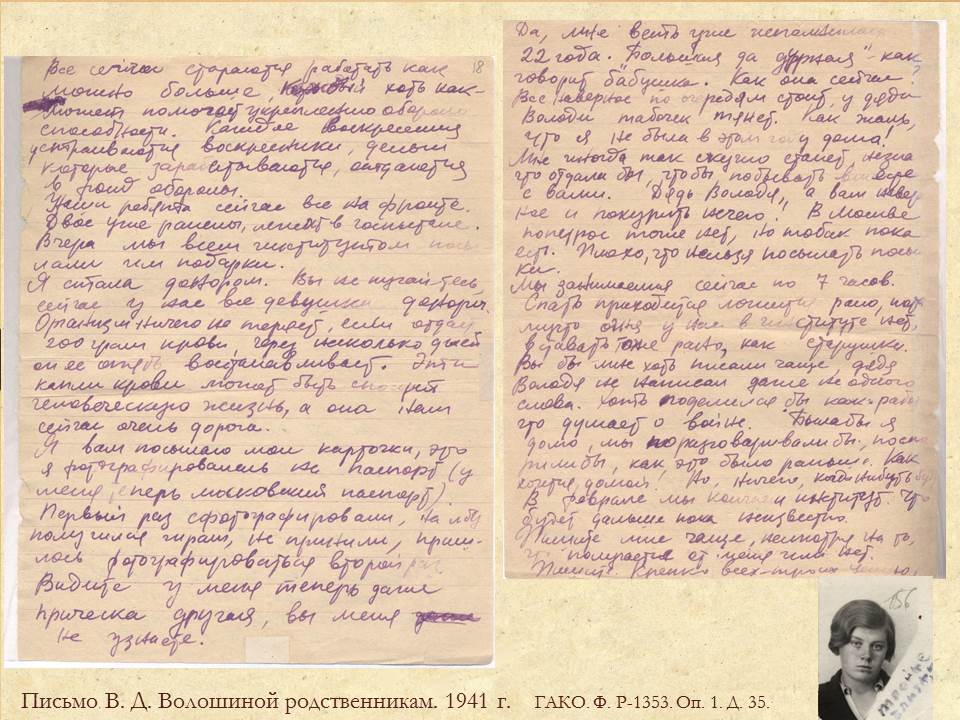 18
Все сейчас стараются работать как
можно больше, хоть как-
помогает укреплению оборонно
способности. Каждое воскресенье
устраиваются воскресники, деньги
которые зарабатываются, отдаются
в фонд обороны.
Наши ребята сейчас все на фронте.
Двое уже ранены, лежат в госпитале.
Вчера мы всем институтом посы
лали им подарки.
Я стала донором. Вы не пугайтесь,
сейчас у нас все девушки доноры.
Организм ничего не теряет, если отдает
200 грам крови через несколько дней
он ее опять восстанавливает. Эти
капли крови может быть спасут
человеческую жизнь, а она нам
сейчас очень дорога.
Я вам посылаю мои карточки, это
я фотографировалась на паспорт (у
меня теперь московский паспорт).
Первый раз сфотографировали, на лбу
получился шрам, не приняли, приш-
лось фотографироваться второй раз.
Видите у меня теперь даже
прическа другая, вы меня
не узнаете.
Да, мне ведь уже исполнилось
22 года. "Большая да дурная" - как
говорит бабушка. Как она сейчас?
Все наверное по очередям стоит, у дяди
Володи табачек тянет. Как жаль,
что я не была в этом году дома!
Мне иногда так скучно станет, незна
что отдала бы, чтобы побывать вместе
с вами. Дядь Володя, а вам навер
ное и покурить нечего? В Москве
попурос тоже нет, но табак пока
есть. Плохо, что нельзя посылать посыл
ки.
Мы занимаемся сейчас по 7 часов.
Спать приходится ложится рано, пот
му что огня у нас в институте нет,
вставать тоже рано, как старушки.
Вы бы мне хоть писали чаще, дядя
Володя не написал даже не одного
слова. Хоть поделился бы как-
что думает о войне. Была бы я
дома, мы поразговаривали бы, поспо
рили бы, как это было раньше. Как
хочется домой! Но, ничего, когда нибудь
В феврале мы кончаем институт. Что
будет дальше пока неизвестно.
Пишите мне чаще, несмотря на то,
что получаете от меня или нет.
Пишите. Крепко всех-троих целую,
156
Письмо В. Д. Волошиной родственникам. 1941 г. ГАКО. Ф. Р-1353. Оп. 1. Д. 35.